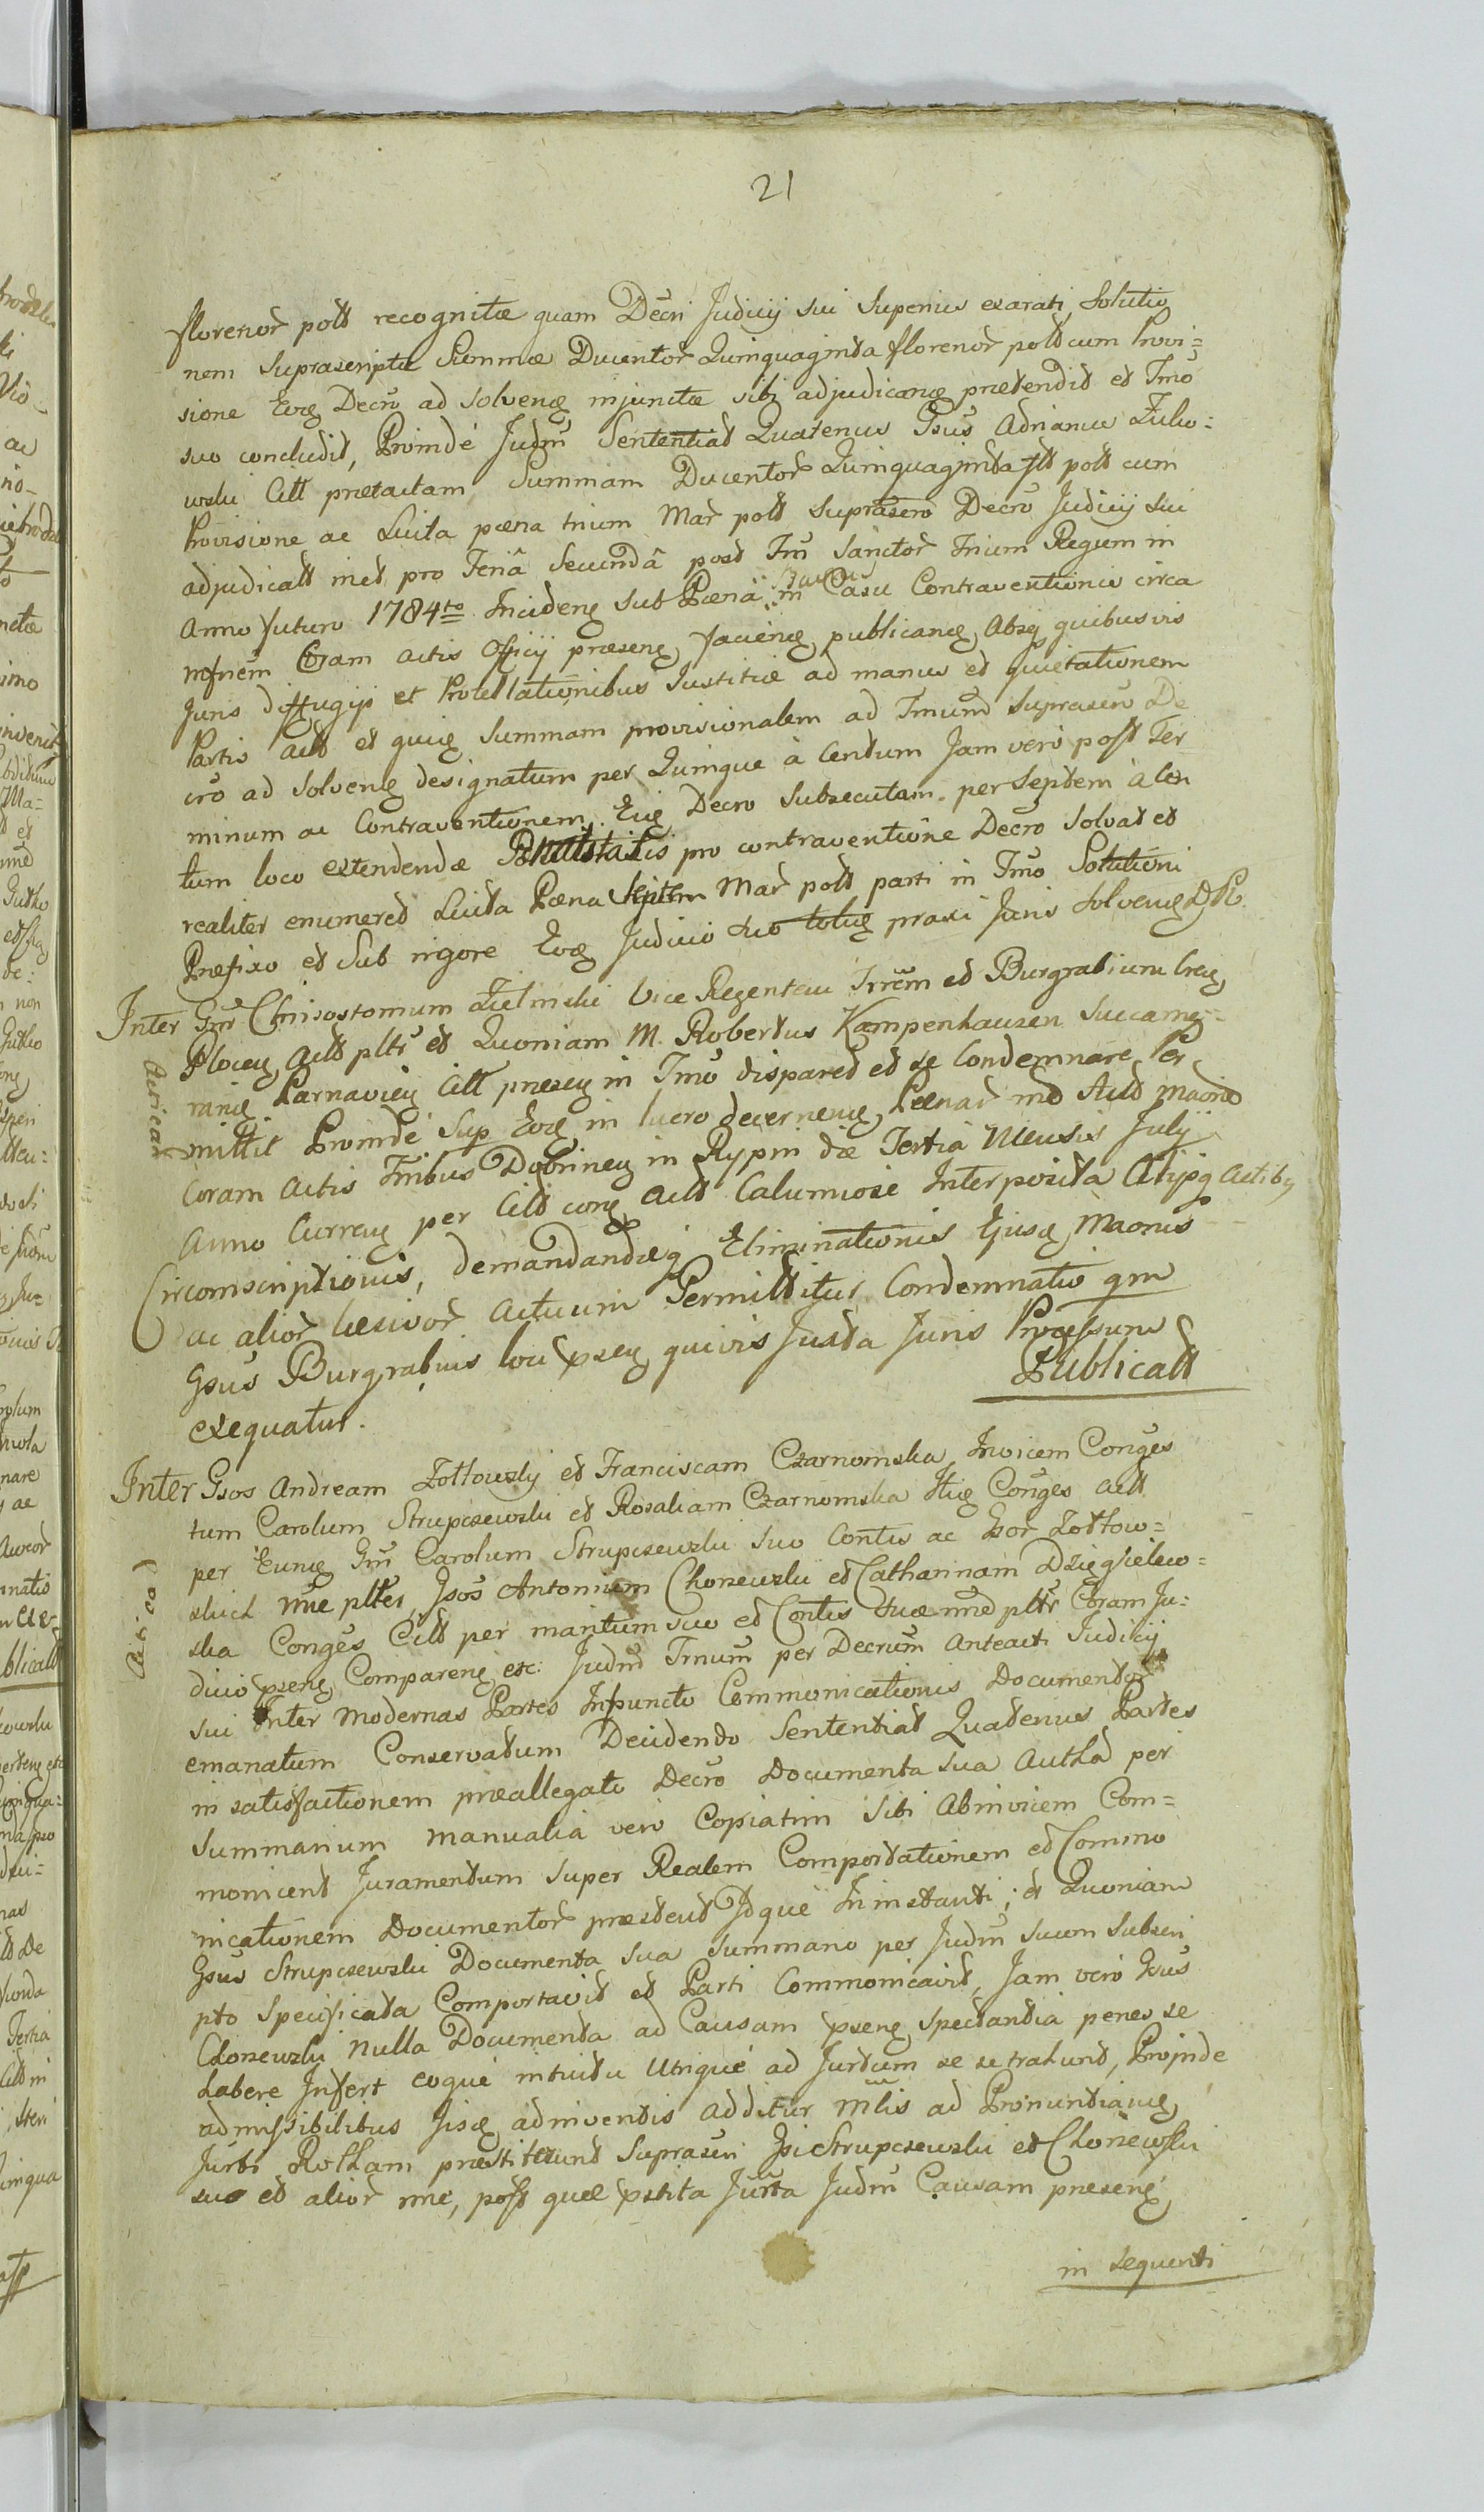 21
florenor̃ poll recognitæ quam Decri Judicij sui superius exarati, solutio
nem suprascriptæ Summæ Ducentor̃ Quinquaginta florenor̃ poll cum Provi=
sione Eoq Decrõ ad solvenq injunctæ sibi adjudicanq prætendit et Tm̃o
suo concludit, Proinde Judm̃ Sententiat Quatenus Gsus Adrianus Zulio=
wski Citt prætactam Summam Ducentor̃ Quinquaginta fll poll cum
Provisione ac Luita pœna trium Mar̃ poll suprascro Decrõ Judicij sui
adjudicatt inet pro Feriâ Secundâ post Fm̃ Sanctor̃ trium Regum in
Anno futuro 1784to Incidenq sub Pœnâ in Casu Contraventionis circa
Coram actis Officij præsenq facienq publicanq, Absq quibusvis
Juris diffugijs et Protellationibus Justitiæ ad manus et quietationem
Partis actt et quiq Summam provisionalem ad Tm̃um suprascro De
cro ad solvenq designatum per Quinque à Centum Jam vero post Ter
minum ac Contraventionem Euq Decro subsecutam per septem à Cen
tum loco extendendæ pro contraventione Decro solvat et
realiter enumeret Luita Pœna septem Mar̃ poll parti in Tm̃o Solutioni
Præfixo et sub rigore Eoq Judicio suo praxi Juris solvenq
Inter Gsm̃ Chrisostomum Zielinski Vice Regentem Trrem et Burgrabium Cren
Plocen Actt pltr̃ et Quoniam M. Robertus Kampenhauzen Succame=
rariq Parnavien Citt præsen in Tm̃o disparet et se Condemnare Per
mittit Proinde sup Eoq in lucro decernenq Pœnar̃ Actt
Coram actis Tribus Dobrinen in Rypin die Tertia Mensis Julij
Anno Currenq per Citt conq Actt Calumniose Interposita Alijsq actibq
Circomscriptionis, demandandæq Eliminationis Ejusq
ac alior̃ læsivor̃ actuum Permittitur Condemnatio qm
Gsus Burgrabius loci psen quivis Juxta Juris Processum
exequatur.
Publicatt
Inter Gsos Andream Zołtowski et Franciscam Czarnomska Invicem Conges
tum Carolum Strupczewski et Rosaliam Czarnomska Itiq Conges actt
per Eunq Gsm̃ Carolum Strupczewski suo Contis ac Gsor̃ Zołtow=
skich nm̃e pltes, Gsos Antonium Chozewski et Catharinam Dzięgielew=
ska Conges Citt per maritum suo et Contis suæ nm̃e pltr̃ Coram Ju=
dicio psenq Comparenq etc: Judm̃ Trnum per Decrum Anteacti Judicij
sui Inter modernas Partes Inpuncto Commonicationis Documentor̃
emanatum Conservatum Decidendo Sententiat Quatenus Partes
in satisfactionem præallegati Decro Documenta sua Autha per
Summarium manualia vero Copiatim sibi Abinvicem Com=
monicent Juramentum super Realem Comportationem et Commo
nicationem Documentor̃ præstent Idque In instanti; et Quoniam
Gsus Strupczewski Documenta sua Summario per Judm̃ suum subscri
pto specificata Comportavit et Parti Commonicavit, Jam vero Gsus
Chozewski nulla Documenta ad Causam psenq spectantia penes se
habere Infert eoque intuitu Utrique ad Jurtum se se trahunt, Proinde
admissibilibus Jisq adinventis additur Mlis ad Pronuntianq
Jurti Rotham præstiterunt suprascri Gsi Strupczewski et Choziewski
suo et alior̃ nm̃e, post quæ pstita Jurta Judm̃ Causam præsenq
in sequenti